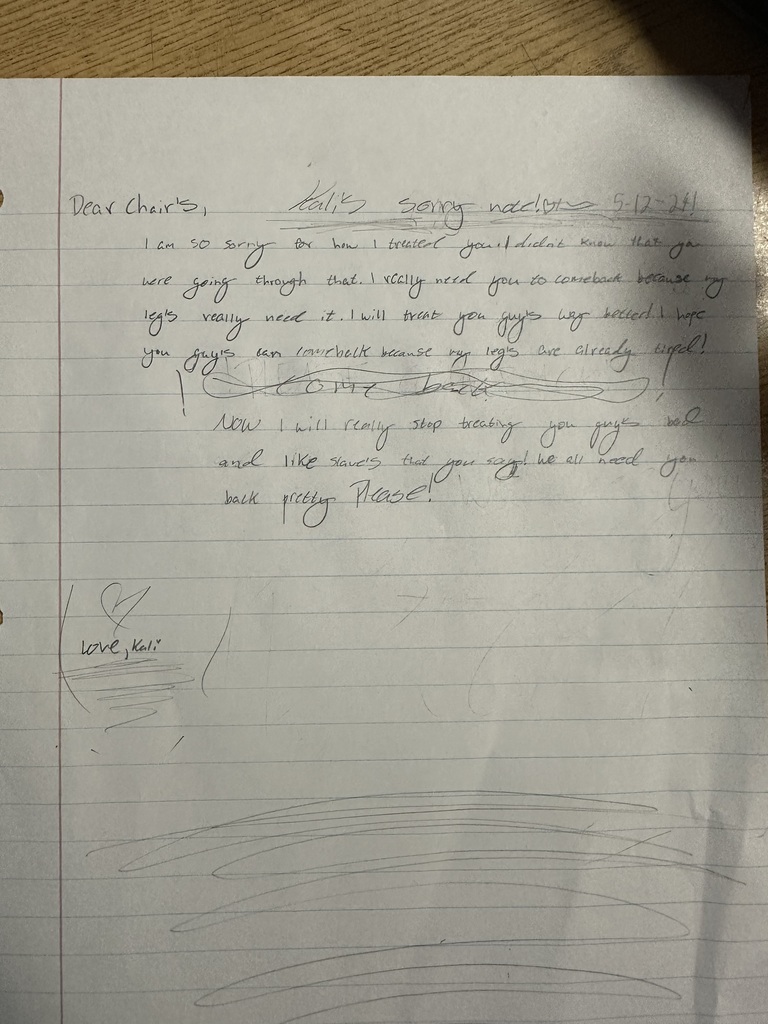 Dear Chair's, Kali's sorry note! 5-12-24!
I am so sorry for how I treated you. I didn't know that you
were going through that. I really need you to comeback because my
leg's really need it. I will treat you guy's way better! I hope
you guy's can comeback because my leg's are already tired!
! Come back !
Now I will really stop treating you guy's bad
and like slave's that you say! We all need you
back pretty Please!
Love, Kali